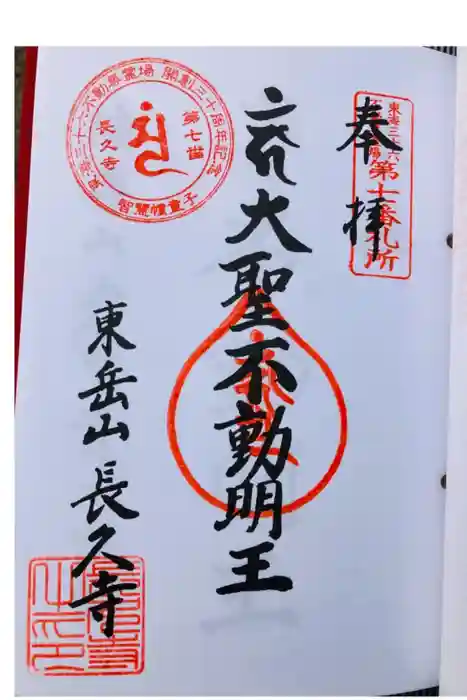 奉拝
東海三十六
第七番札所
大聖不動明王
東岳山 長久寺
東海三十六不動尊霊場 開創三十周年記念
第七番
長久寺
智慧幢童子